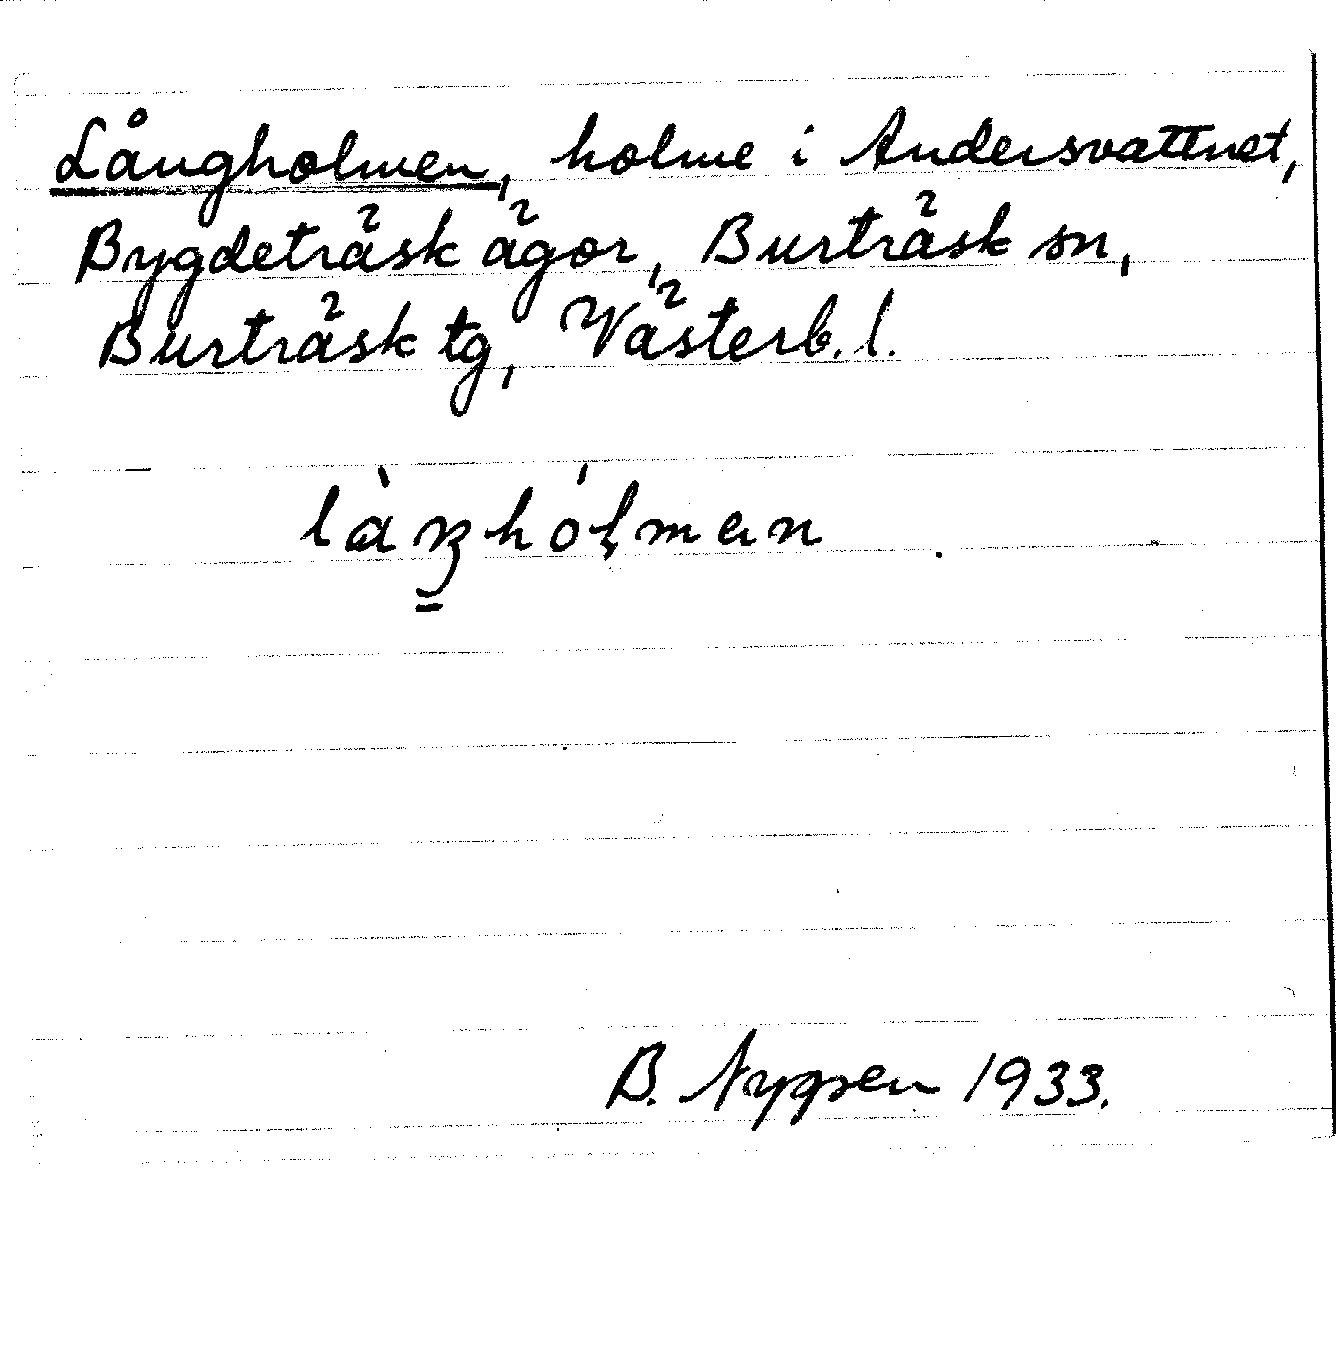 Långholmen, holme i Andersvattnet,
Bygdeträsk ägor, Burträsk sn,
Burträsk tg, Västerb. l.
B. Nygren 1933.